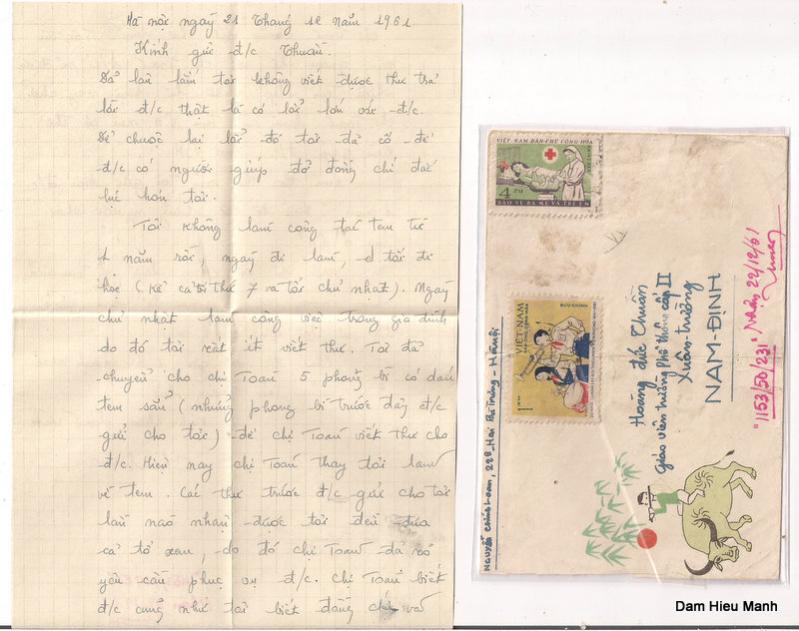 Hà nội ngày 21 Tháng 12 Năm 1961
Kính gửi đ/c Thuần.
Đã lâu lắm tôi không viết được thư trả
lời đ/c thật là có lỗi lớn với đ/c.
Để chuộc lại lỗi đó tôi đã cố để
đ/c có người giúp đỡ đồng chí đắc
lực hơn tôi.
Tôi không làm công tác tem từ
1 năm rồi, ngày đi làm, tối đi
học (kể cả thứ 7 và tối chủ nhật). Ngày
chủ nhật làm công việc trong gia đình
do đó tôi rất ít viết thư. Tôi đã
chuyển cho chị Toàn 5 phong bì có dán
tem sẵn (những phong bì trước đây đ/c
gửi cho tôi) để chị Toàn viết thư cho
đ/c. Hiện nay chị Toàn thay tôi làm
về tem. Các thư trước đ/c gửi cho tôi
lần nào nhận được tôi đều đưa
cả tổ xem, do đó chị Toàn đã có
yêu cầu phục vụ đ/c. Chị Toàn biết
đ/c cũng như tôi biết đồng chí và
VIỆT-NAM DÂN-CHỦ CỘNG-HÒA
4 xu
BẢO VỆ BÀ MẸ VÀ TRẺ EM
BƯU CHÍNH
VIỆT-NAM
DÂN CHỦ CỘNG HÒA
1 xu
Nguyễn Chính Lam, 228 Hai Bà Trưng - Hà nội
Hoàng đức Thuần
Giáo viên trường Phổ thông cấp II
Xuân-trường
NAM-ĐỊNH
"1153/50/231" Nhận 22/12/61
Dam Hieu Manh